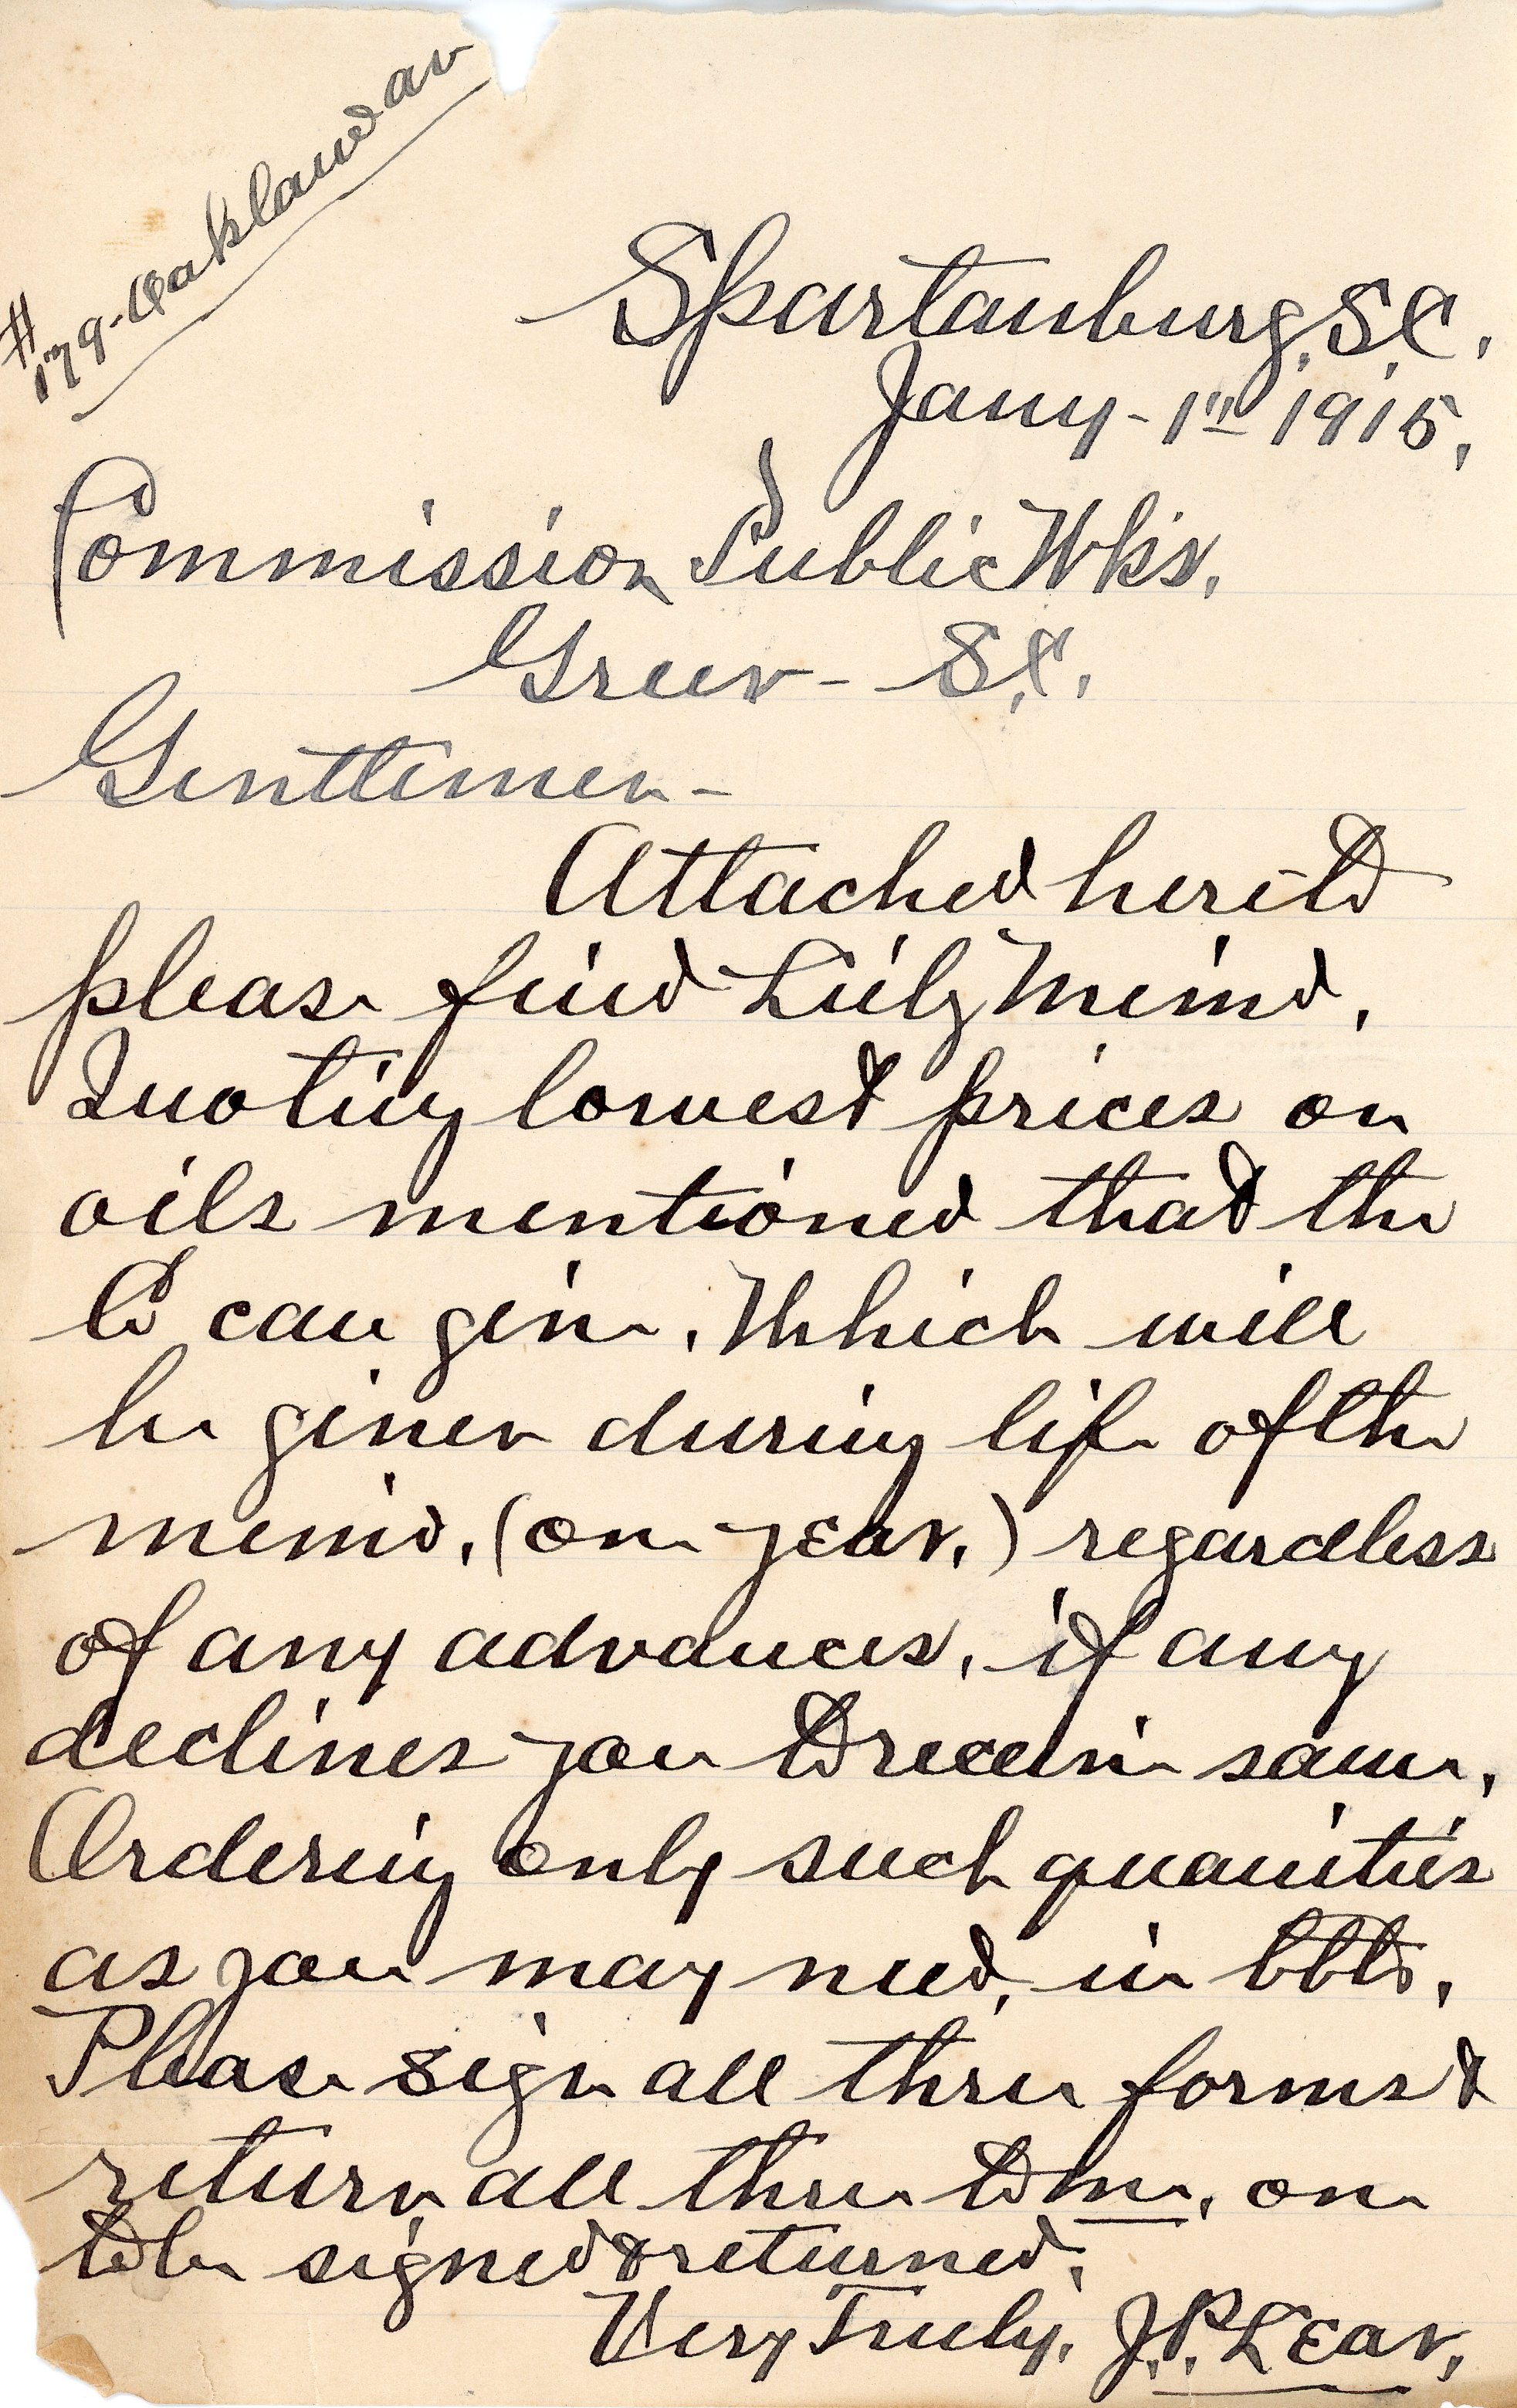 #179-Oakland av
Spartanburg, S.C.
Jany-1st 1915,
Commission Public Wks.
Greer - S.C.
Genttemen-
Attached hereto
please find Lub'g Memo.
Quoting lowest prices on
oils mentioned that the
Co can give. Which will
be given during life of the
memo. (one year.) regardless
of any advances. if any
declines you to receive same.
Ordering only such quanities
as you may need, in bbls.
Please sign all three forms &
return all three to me, one
to be signed & returned.
Very Truly, J.P. Lear,